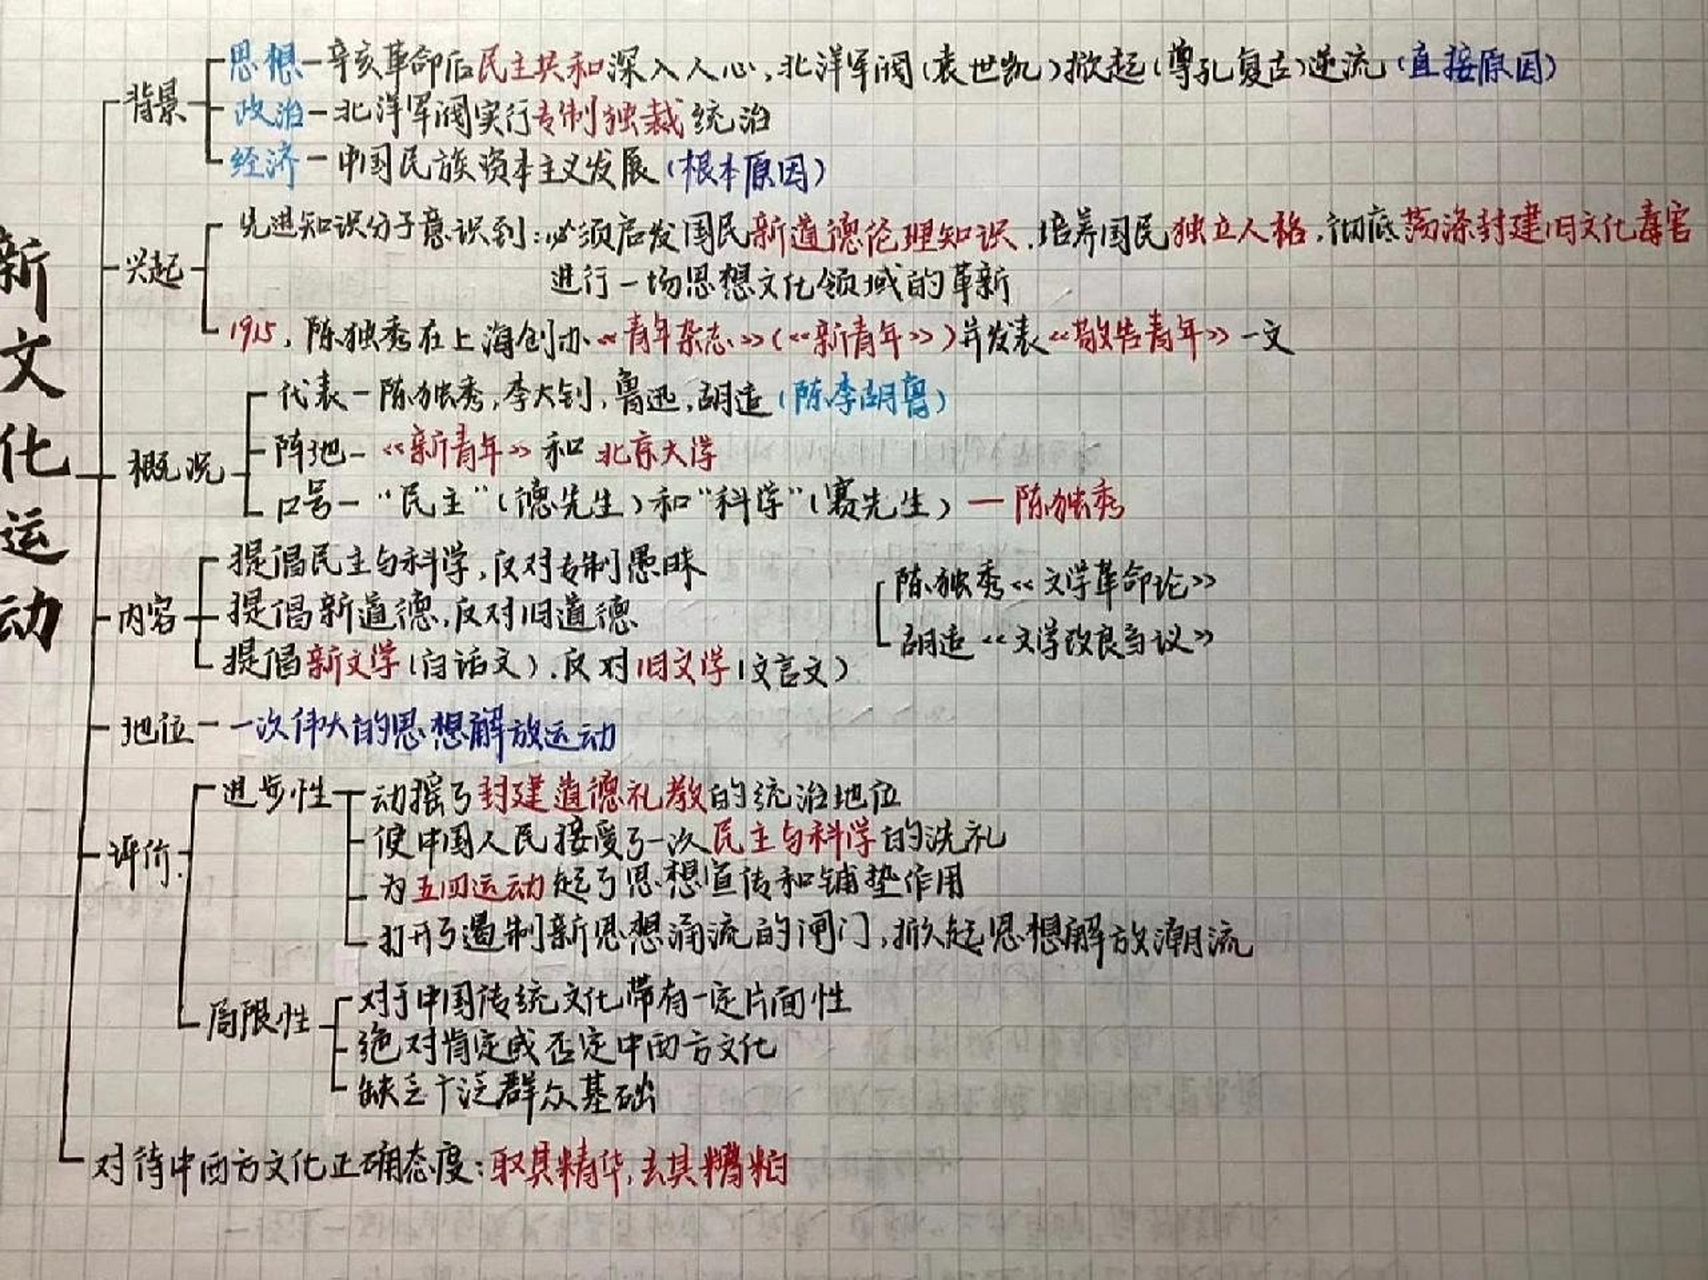 新文化运动
背景
思想-辛亥革命后民主共和深入人心,北洋军阀(袁世凯)掀起(尊孔复古)逆流(直接原因)
政治-北洋军阀实行专制独裁统治
经济-中国民族资本主义发展(根本原因)
兴起
先进知识分子意识到:必须启发国民新道德伦理知识,培养国民独立人格,彻底荡涤封建旧文化毒害
进行一场思想文化领域的革新
1915,陈独秀在上海创办《青年杂志》(《新青年》)并发表《敬告青年》一文
概况
代表-陈独秀,李大钊,鲁迅,胡适(陈李胡鲁)
阵地-《新青年》和北京大学
口号-"民主"(德先生)和"科学"(赛先生)—陈独秀
内容
提倡民主与科学,反对专制愚昧
提倡新道德,反对旧道德
提倡新文学(白话文),反对旧文学(文言文)
陈独秀《文学革命论》
胡适《文学改良刍议》
地位-一次伟大的思想解放运动
评价
进步性
动摇了封建道德礼教的统治地位
使中国人民接受了一次民主与科学的洗礼
为五四运动起了思想宣传和铺垫作用
打开了遏制新思想涌流的闸门,掀起思想解放潮流
局限性
对于中国传统文化带有一定片面性
绝对肯定或否定中西方文化
缺乏广泛群众基础
对待中西方文化正确态度:取其精华,去其糟粕